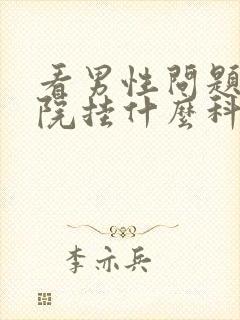 看男性問題
院挂什麽科
李亦兵